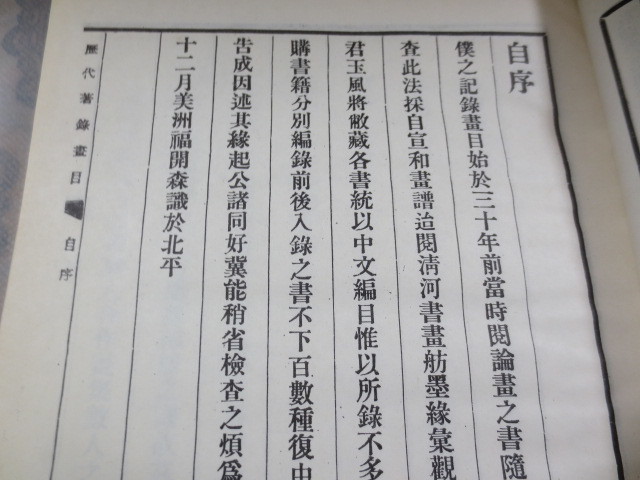 自序
僕之記錄畫目始於三十年前當時閱論畫之書隨
查此法採自宣和畫譜迨閱淸河書畫舫墨緣彙觀
君玉風將敝藏各書統以中文編目惟以所錄不多
購書籍分別編錄前後入錄之書不下百數種復由
告成因述其緣起公諸同好冀能稍省檢查之煩爲
十二月美洲福開森識於北平
歷代著錄畫目 自序